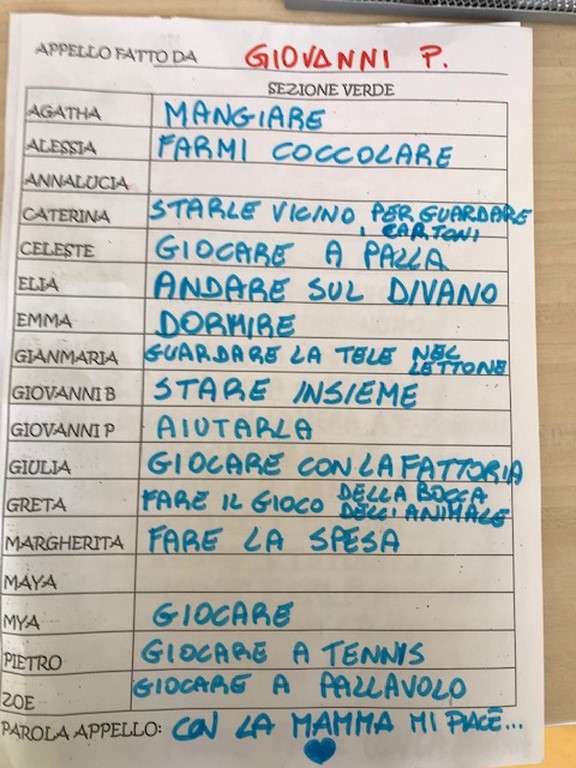 APPELLO FATTO DA GIOVANNI P.
SEZIONE VERDE
AGATHA MANGIARE
ALESSIA FARMI COCCOLARE
ANNALUCIA
CATERINA STARLE VICINO PER GUARDARE
I CARTONI
CELESTE GIOCARE A PALLA
ELIA ANDARE SUL DIVANO
EMMA DORMIRE
GIANMARIA GUARDARE LA TELE NEL
LETTONE
GIOVANNI B STARE INSIEME
GIOVANNI P AIUTARLA
GIULIA GIOCARE CON LA FATTORIA
GRETA FARE IL GIOCO DELLA BOCCA
DEGLI ANIMALE
MARGHERITA FARE LA SPESA
MAYA
MYA GIOCARE
PIETRO GIOCARE A TENNIS
ZOE GIOCARE A PALLAVOLO
PAROLA APPELLO: CON LA MAMMA MI PIACE...